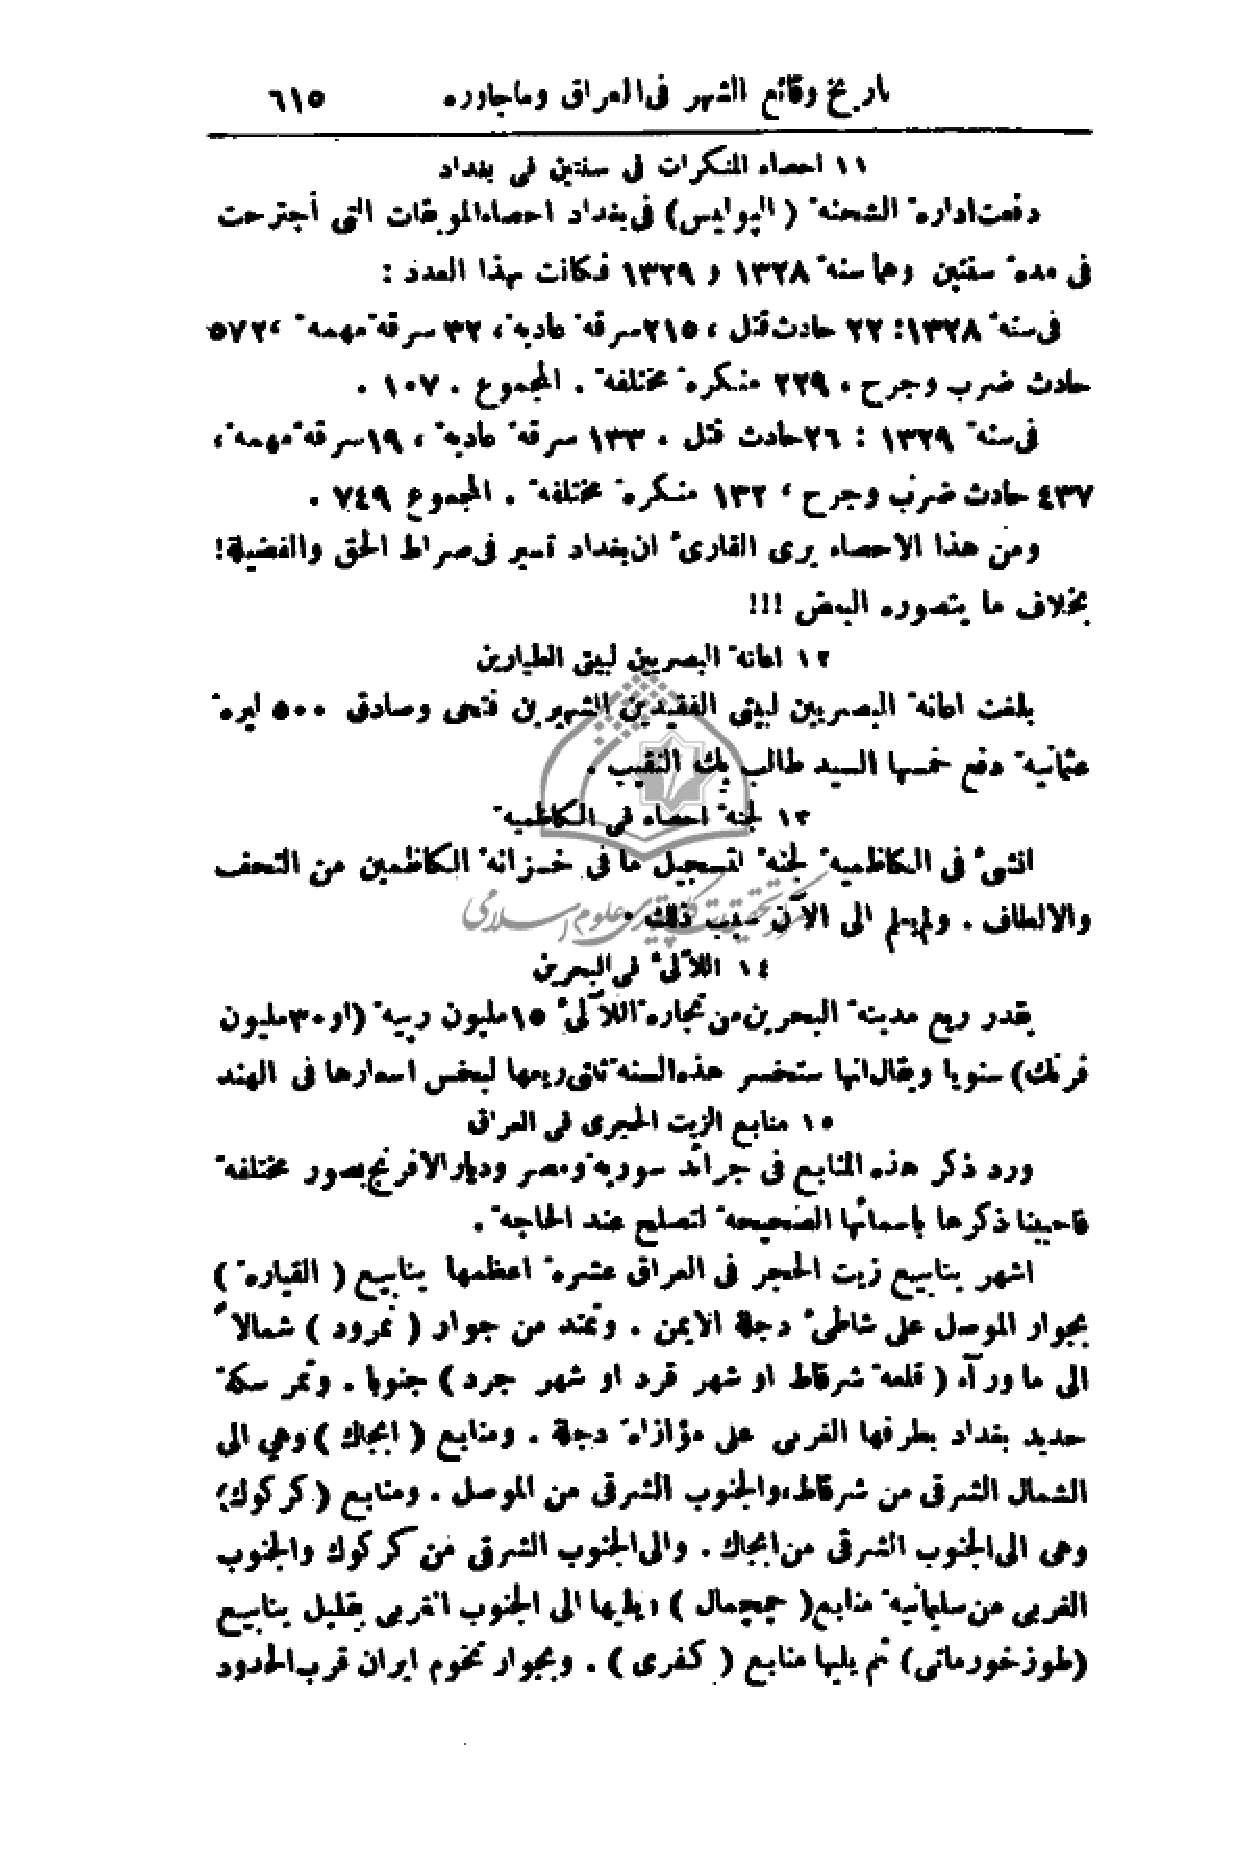 تاريخ وقائع الشهر فى العراق وماجاوره ٦١٥
١١ احصاء المنكرات فى سنتين فى بغداد
دفعت ادارة الشحنة (البوليس) فى بغداد احصاء الموبقات التى أجترحت
فى مدة سنتين وهما سنة ١٣٢٨ و ١٣٢٩ فكانت بهذا العدد :
فى سنة ١٣٢٨: ٢٢ حادث قتل ، ٢١٥ سرقة عادية، ٣٢ سرقة مهمة ، ٥٧٢
حادث ضرب وجرح ، ٢٢٩ منكرة مختلفة . المجموع . ١٠٧ .
فى سنة ١٣٢٩ : ٢٦ حادث قتل . ١٣٣ سرقة عادية ، ١٩ سرقة مهمة ،
٤٣٧ حادث ضرب وجرح ، ١٣٢ منكرة مختلفة . المجموع ٧٤٩ .
ومن هذا الاحصاء يرى القارئ ان بغداد تسير فى صراط الحق والفضيلة!
بخلاف ما يتصوره البعض !!!
١٢ اعانة البصريين لبيتى الطيارين
بلغت اعانة البصريين لبيتى الفقيدين الشهيرين فتحى وصادق ٥٠٠ ليرة
عثمانية دفع خمسها السيد طالب بك النقيب .
١٣ لجنة احصاء فى الكاظمية
انشئ فى الكاظمية لجنة لتسجيل ما فى خزانة الكاظمين من التحف
والالطاف . ولم يعلم الى الآن سبب ذلك .
١٤ اللآلئ فى البحرين
يقدر ريع مدينة البحرين من تجارة اللآلئ ١٥ مليون ربية (او ٣٠ مليون
فرنك) سنويا ويقال انها ستخسر هذه السنة ثانى ريعها لبخس اسعارها فى الهند
١٥ منابع الزيت الحجرى فى العراق
ورد ذكر هذه المنابع فى جرائد سورية ومصر وديار الافرنج بصور مختلفة
فاحببنا ذكرها باسمائها الصحيحة لتصلح عند الحاجة .
اشهر ينابيع زيت الحجر فى العراق عشرة اعظمها ينابيع ( القيارة )
بجوار الموصل على شاطئ دجلة الايمن . وتمتد من جوار ( نمرود ) شمالاً
الى ما ورآء ( قلعة شرقاط او شهر قرد او شهر جرد ) جنوبا . وتمر سكة
حديد بغداد بطرفها الغربى على مؤازاة دجلة . ومنابع ( ابجاك ) وهي الى
الشمال الشرقى من شرقاط، والجنوب الشرقى من الموصل . ومنابع ( كركوك )
وهى الى الجنوب الشرقى من ابجاك . والى الجنوب الشرقى من كركوك والجنوب
الغربى من سليمانية منابع ( جمجمال ) ويليها الى الجنوب الغربى بقليل ينابيع
(طوزخورماتى) ثم يليها منابع ( كفرى ) . وبجوار تخوم ايران قرب الحدود
مركز تحقيقات كامپيوترى علوم اسلامى